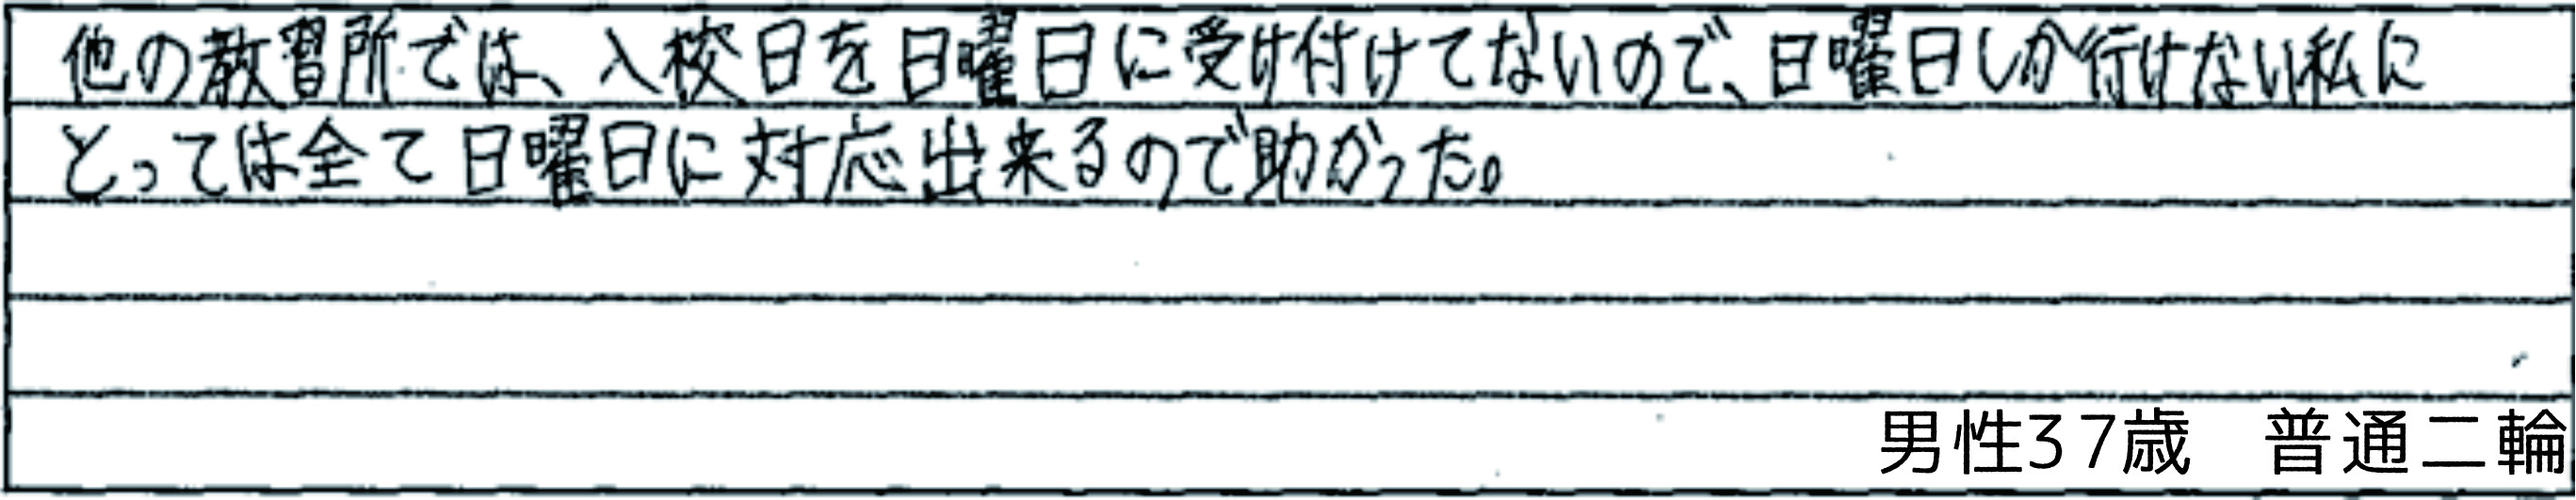 他の教習所では、入校日を日曜日に受け付けてないので、日曜日しか行けない私に
とっては全て日曜日に対応出来るので助かった。
男性37歳　普通二輪